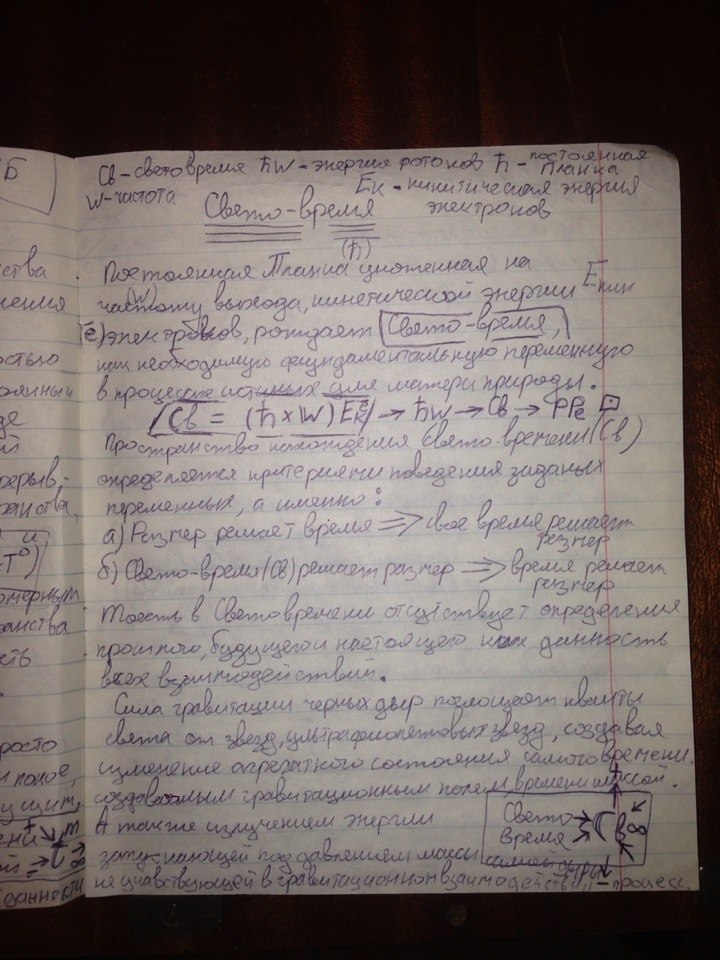 Б
Св – световремя ħw – энергия фотонов ħ – постоянная Планка
W – частота
Ек – кинитическая энергия электронов
Свето-время
(ħ)
Постоянная Планка умноженная на
(W)
частоту выхода, кинетической энергии Екин
ē) электронов, рождает Свето-время,
как необходимую фундаментальную переменную
в процессе истиных сил матери природы.
(Св = (ħ×W) Eкē) → ħW → Св → РРе
Пространство нахождения Свето-времени (Св)
определяется критериями поведения заданых
переменных, а именно:
а) Размер решает время ⇒ свое время решает размер
б) Свето-время (Св) решает размер ⇒ время решает размер
Тоесть в Световремени отсутствует определения
прошлого, будущего и настоящего как данность
всех взаимодействий.
Сила гравитации черных дыр поглощает кванты
света от звезд, ультрафиолетовых звезд, создавая
изменение агрегатного состояния самого времени.
создаваемым гравитационным полем времени и массой.
А также излучением энергии
Свето
Время
под давлением массы самой
не учавствующей в гравитационном взаимодействии – процесс.
ства
нения
ностью
оянный
где
ой
рерыв-
ранства,
и
Т°)
омерным
ранства
ость
росто
и поное,
данности